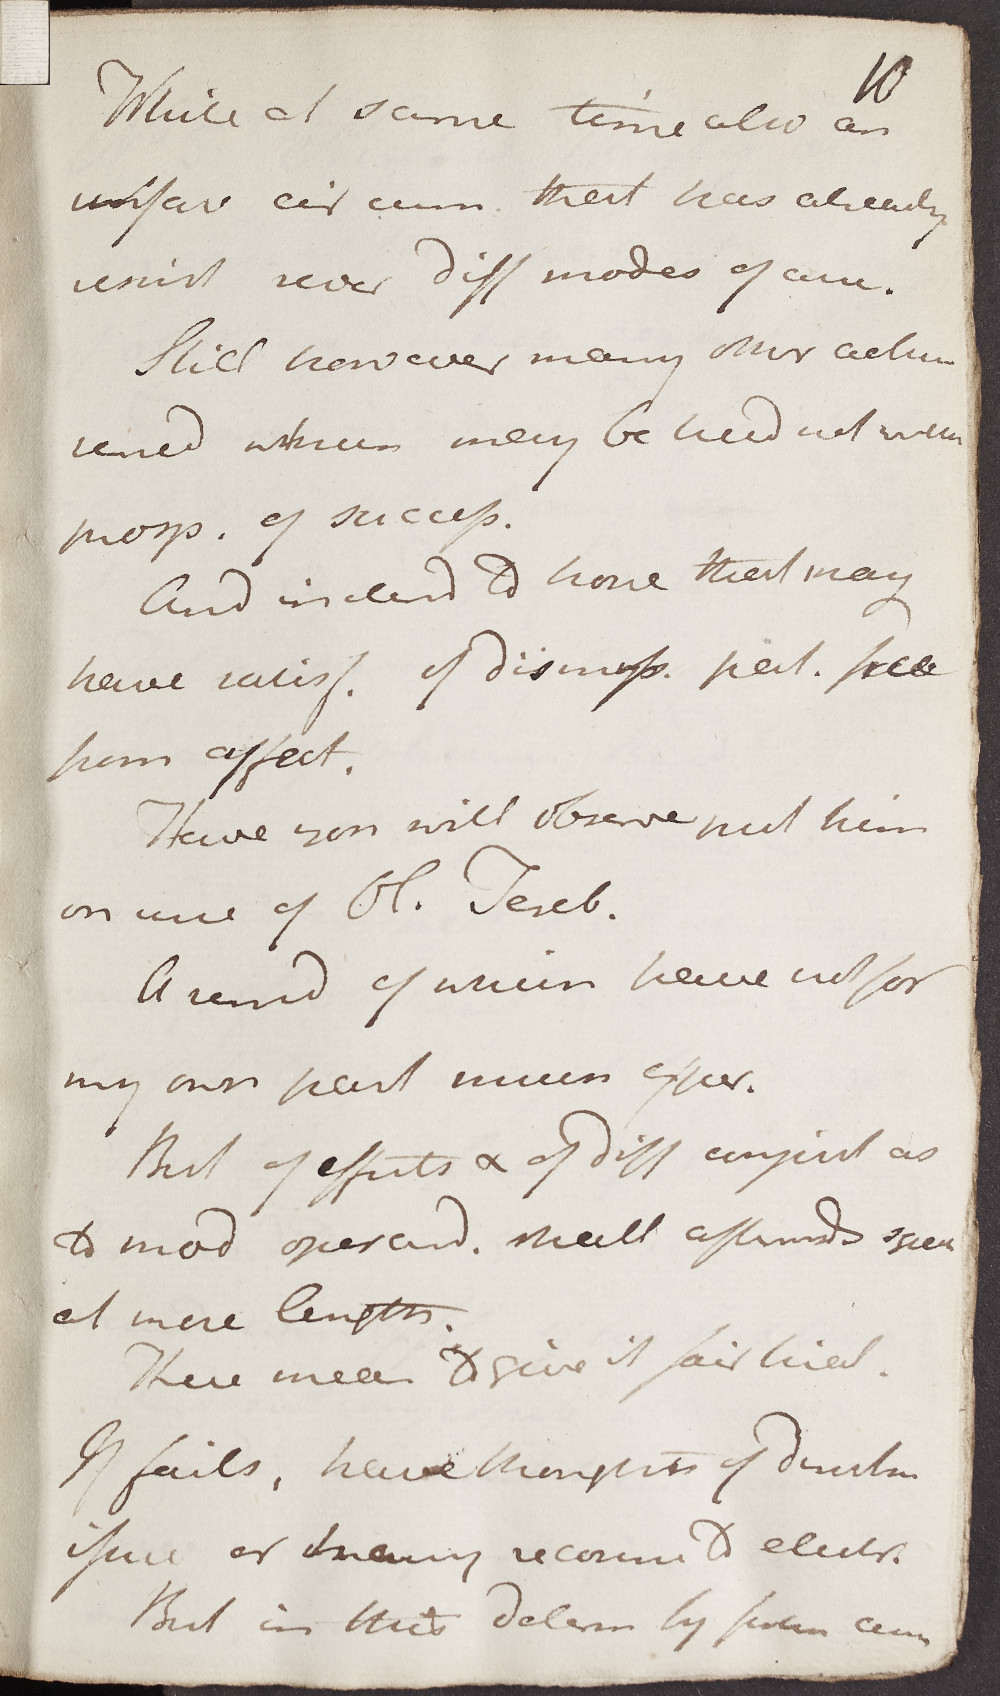 10
While at same time also an
unfav circum. that has already
resist sever diff modes of cure.
Still however many other action
remed which may be had not without
prosp. of success.
And indeed to hope that may
have satisf. of dismiss. pat. free
from affect.
Have you will observe put him
on use of Ol. Tereb.
A remed of which have not for
my own part much exper.
But of effects & of diff conject as
to mod operand. shall afterwards speak
at more length.
Here mean to give it fair trial.
If fails, have thoughts of
issue or recourse to electr.
But in this determ by future circum